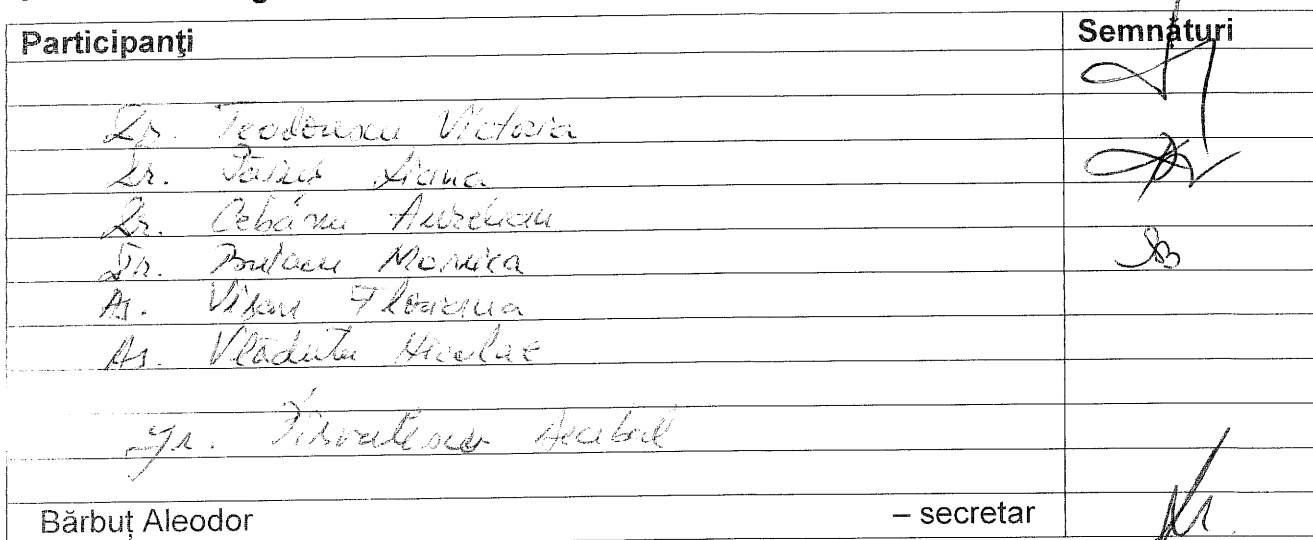 Participanţi Semnături
Dr. Teodorescu Victoria
Dr. Liana
Dr. Cebanu Aurelian
Dr. Monica
As. Vişan Floriana
As. Vlăduta Nicolae
Decebal
Bărbuţ Aleodor – secretar